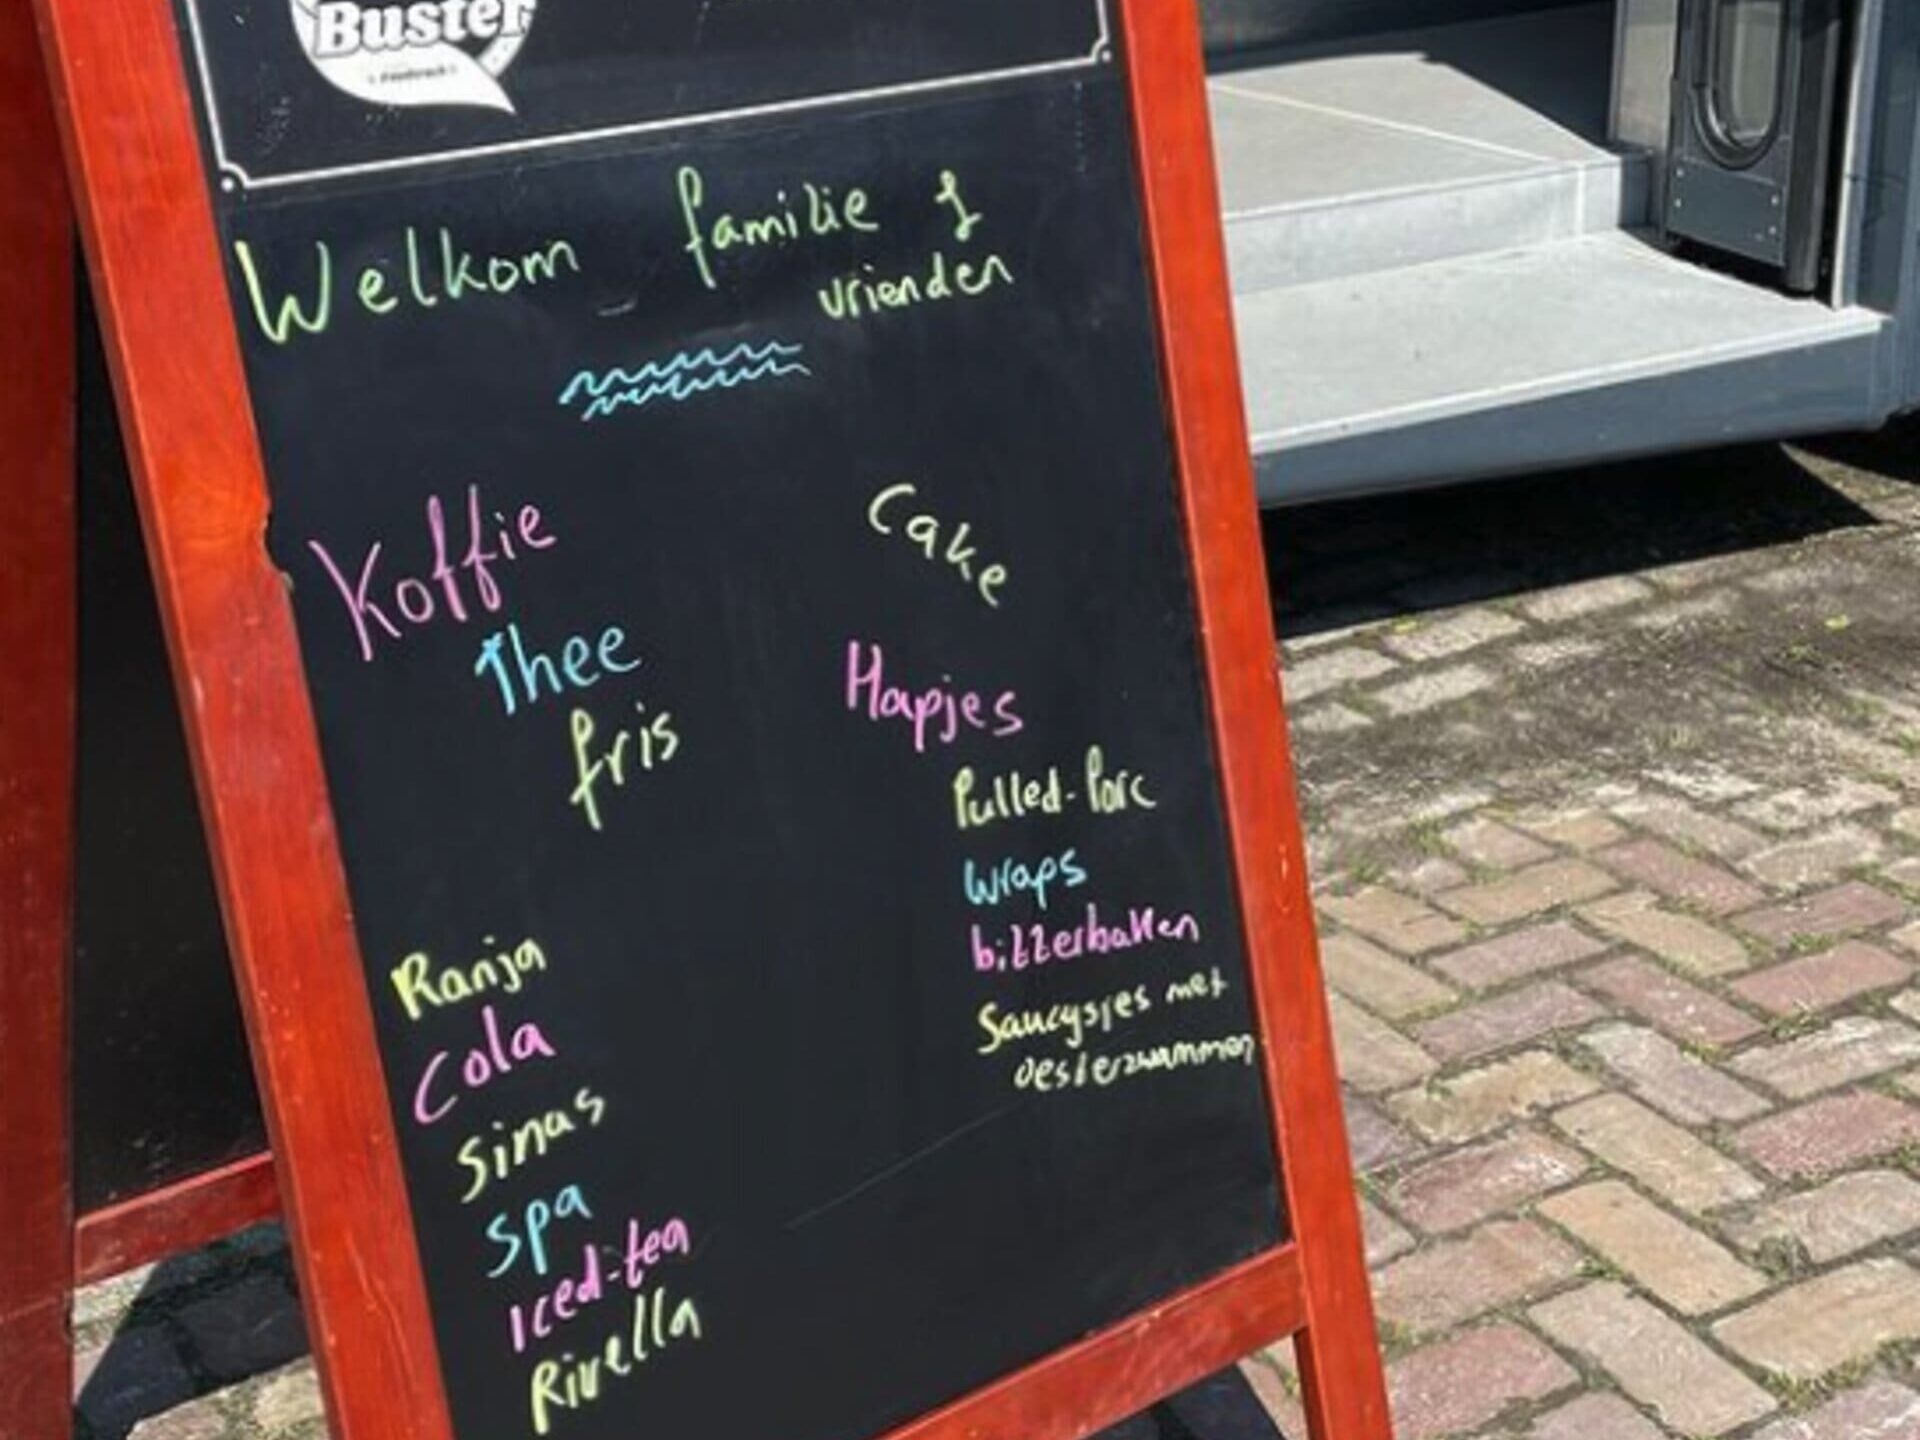 Buster
Foodtruck
Welkom familie &
vrienden
Koffie
Thee
fris
Ranja
Cola
Sinas
Spa
Iced-tea
Rivella
Cake
Hapjes
Pulled-Porc
wraps
bitterballen
Saucysjes met
oesterzwammen